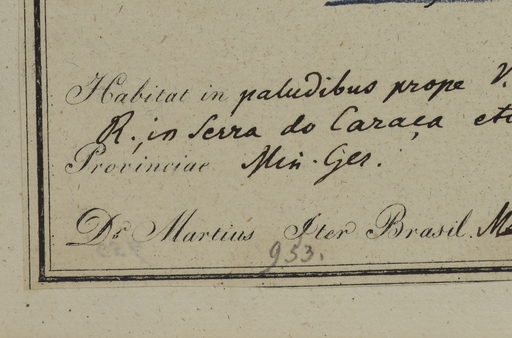 Habitat in paludibus prope V.
R. in Serra do Caraça etc
Provinciae Min. Ger.
Dr Martius Iter Brasil.
953.